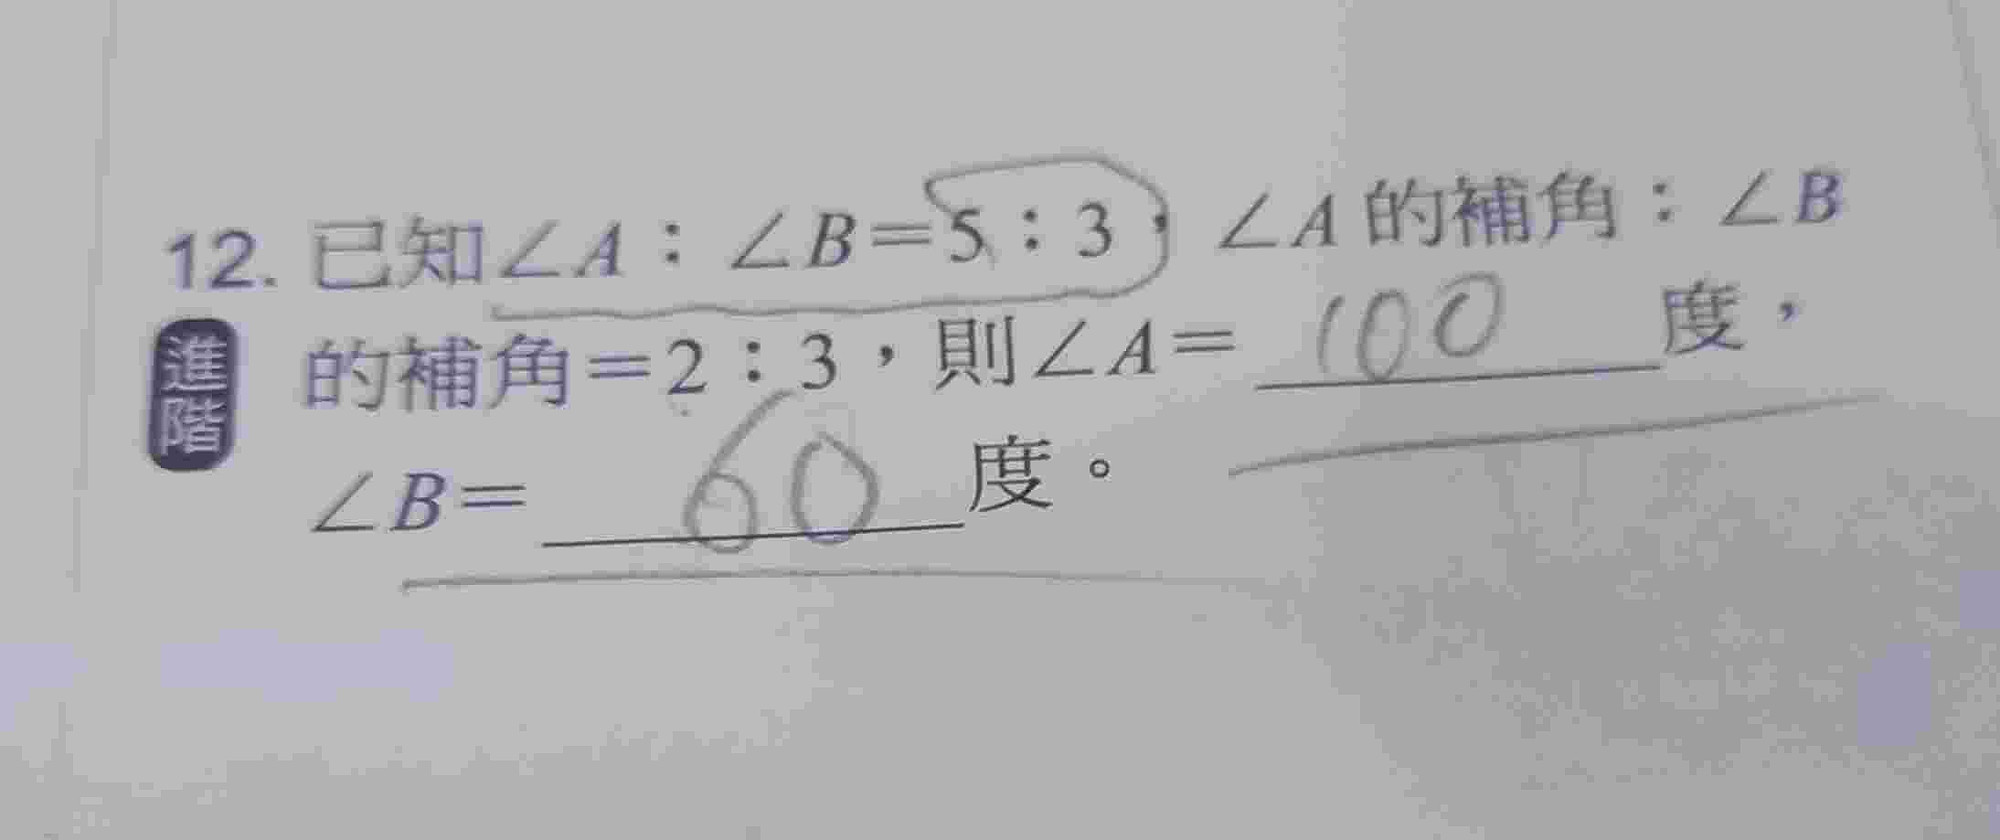 12. 已知∠A:∠B=5:3,∠A 的補角:∠B
進階 的補角=2:3,則∠A= 100 度,
∠B= 60 度。